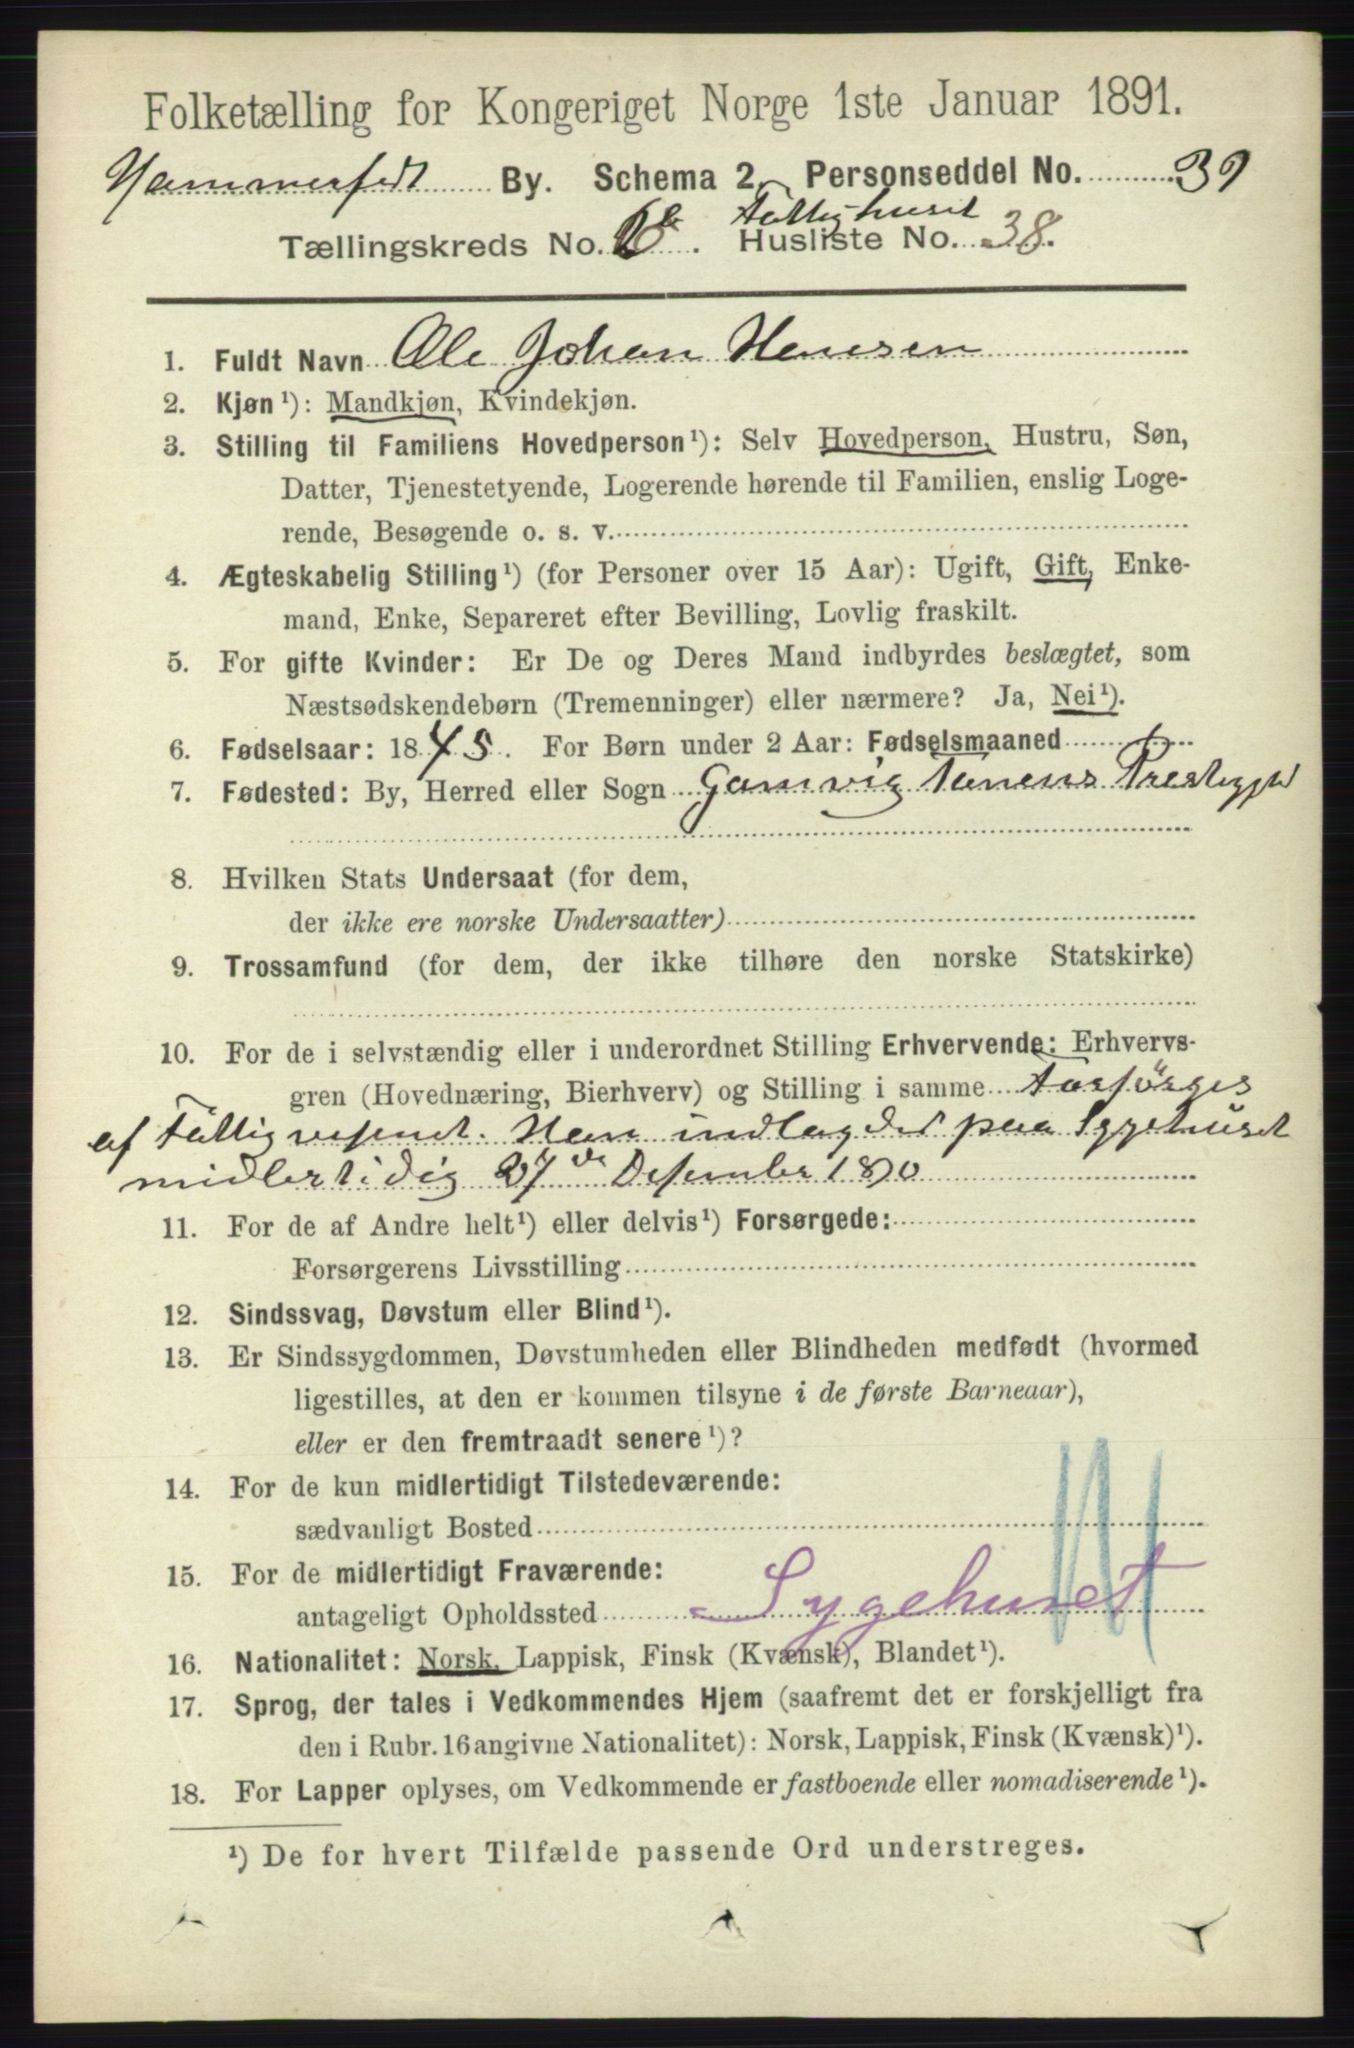 Folketælling for Kongeriget Norge 1ste Januar 1891.
Hammerfest By. Schema 2. Personseddel No. 39
Fattighuset
Tællingskreds No. Husliste No. 38.
1. Fuldt Navn Ole Johan Hansen
2. Kjøn ¹): Mandkjøn, Kvindekjøn.
3. Stilling til Familiens Hovedperson ¹): Selv Hovedperson, Hustru, Søn,
Datter, Tjenestetyende, Logerende hørende til Familien, enslig Loge-
rende, Besøgende o. s. v.
4. Ægteskabelig Stilling ¹) (for Personer over 15 Aar): Ugift, Gift, Enke-
mand, Enke, Separeret efter Bevilling, Lovlig fraskilt.
5. For gifte Kvinder: Er De og Deres Mand indbyrdes beslægtet, som
Næstsødskendebørn (Tremenninger) eller nærmere? Ja, Nei ¹).
6. Fødselsaar: 1845. For Børn under 2 Aar: Fødselsmaaned
7. Fødested: By, Herred eller Sogn Gamvig Tanens Prestegjld
8. Hvilken Stats Undersaat (for dem,
der ikke ere norske Undersaatter)
9. Trossamfund (for dem, der ikke tilhøre den norske Statskirke)
10. For de i selvstændig eller i underordnet Stilling Erhvervende: Erhvervs-
gren (Hovednæring, Bierhverv) og Stilling i samme Forsörges
af Fattigvesenet. Han indlagdes paa Sygehuset
midlertidig 27de Desember 1890
11. For de af Andre helt ¹) eller delvis ¹) Forsørgede:
Forsørgerens Livsstilling
12. Sindssvag, Døvstum eller Blind ¹).
13. Er Sindssygdommen, Døvstumheden eller Blindheden medfødt (hvormed
ligestilles, at den er kommen tilsyne i de første Barneaar),
eller er den fremtraadt senere ¹)?
14. For de kun midlertidigt Tilstedeværende:
sædvanligt Bosted
15. For de midlertidigt Fraværende:
antageligt Opholdssted Sygehuset
16. Nationalitet: Norsk, Lappisk, Finsk (Kvænsk), Blandet ¹).
17. Sprog, der tales i Vedkommendes Hjem (saafremt det er forskjelligt fra
den i Rubr. 16 angivne Nationalitet): Norsk, Lappisk, Finsk (Kvænsk) ¹).
18. For Lapper oplyses, om Vedkommende er fastboende eller nomadiserende ¹).
¹) De for hvert Tilfælde passende Ord understreges.